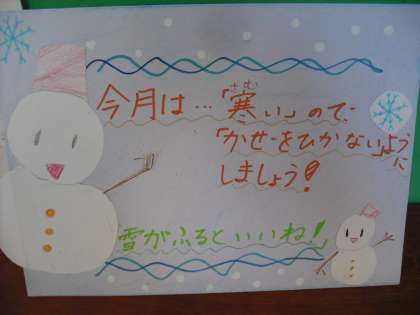 今月は…「寒い」ので、
さむ
「かぜをひかない」ように
しましょう!
雪がふるといいね!」